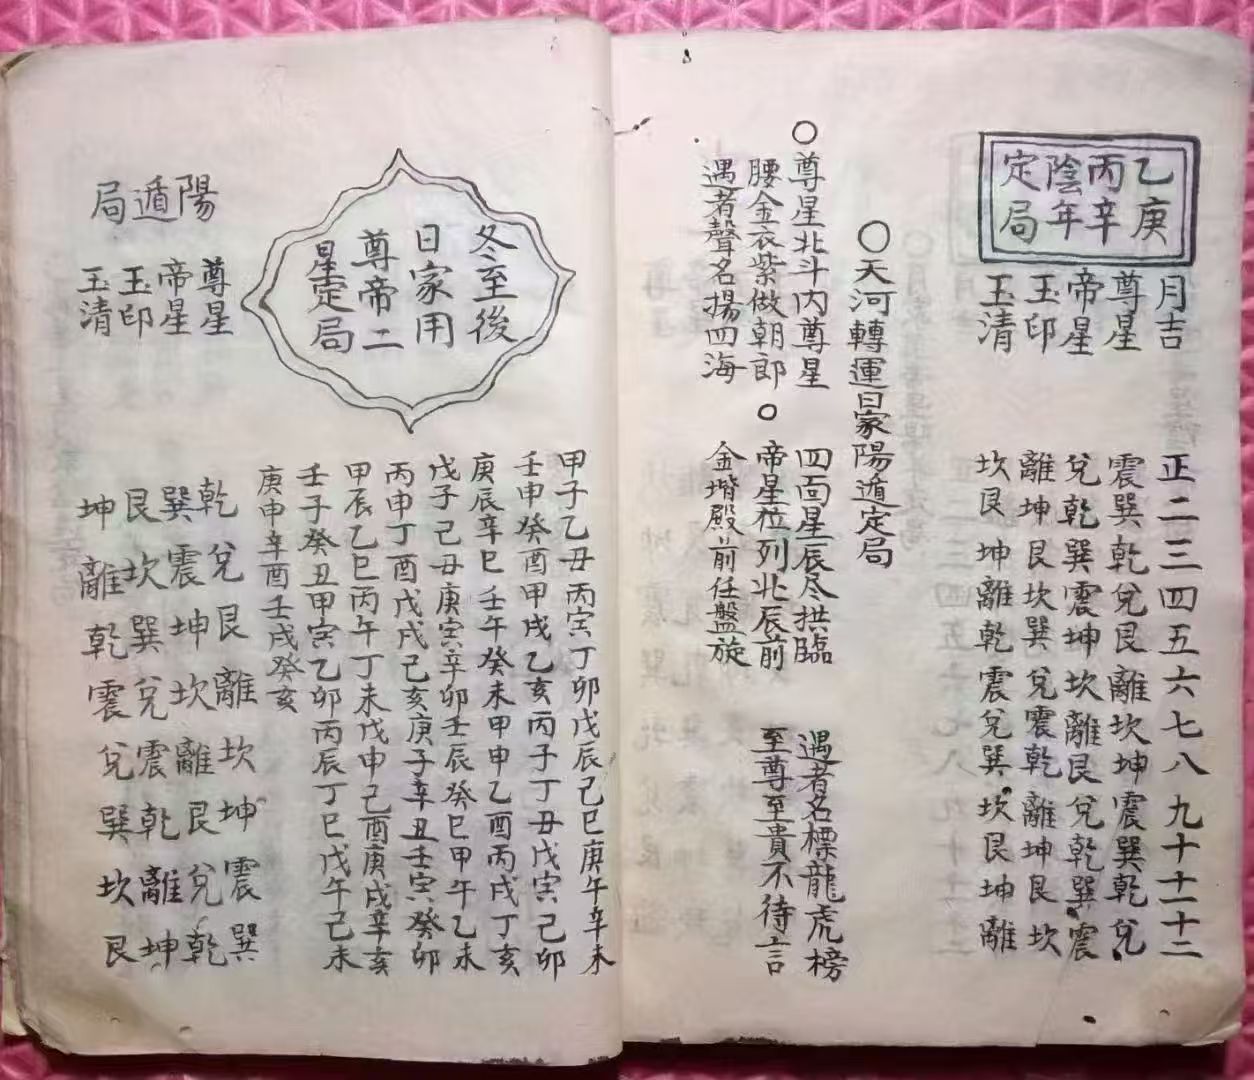 乙庚
丙辛
陰年
定局
月吉 正二三四五六七八九十十一十二
尊星 震巽乾兌艮離坎坤震巽乾兌
帝星 兌乾巽震坤坎離艮兌乾巽震
玉印 離坤艮坎巽兌震乾離坤艮坎
玉清 坎艮坤離乾震兌巽坎艮坤離
〇天河轉運日家陽遁定局
〇尊星北斗内尊星 四面星辰尽拱臨 遇者名標龍虎榜
腰金衣紫做朝郎 〇帝星位列北辰前 至尊至貴不待言
遇者聲名揚四海 金堦殿前任盤旋
冬至後
日家用
尊帝二
星定局
甲子乙丑丙寅丁卯戊辰己巳庚午辛未
壬申癸酉甲戌乙亥丙子丁丑戊寅己卯
庚辰辛巳壬午癸未甲申乙酉丙戌丁亥
戊子己丑庚寅辛卯壬辰癸巳甲午乙未
丙申丁酉戊戌己亥庚子辛丑壬寅癸卯
甲辰乙巳丙午丁未戊申己酉庚戌辛亥
壬子癸丑甲寅乙卯丙辰丁巳戊午己未
庚申辛酉壬戌癸亥
陽遁局
尊星 乾兌艮離坎坤震巽
帝星 巽震坤坎離艮兌乾
玉印 艮坎巽兌震乾離坤
玉清 坤離乾震兌巽坎艮